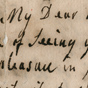 My Dear
of Seeing y
pleasure in